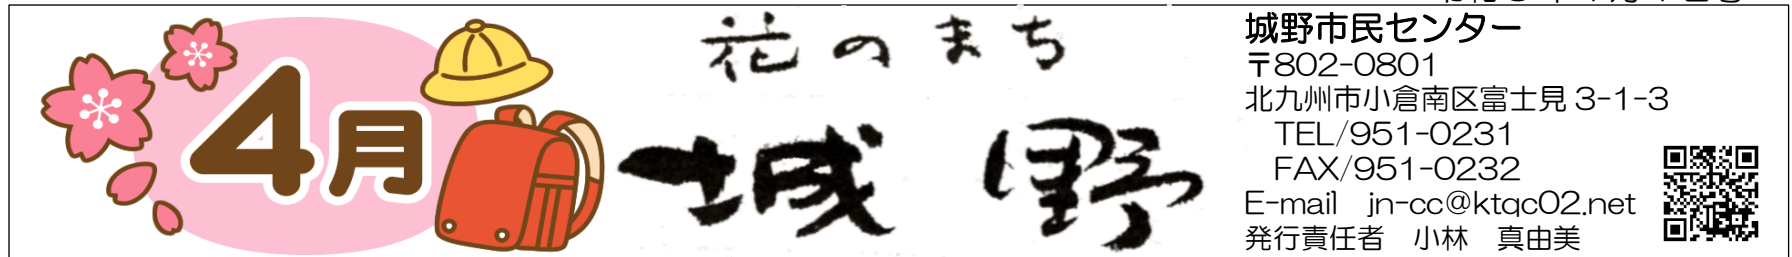 4月
花のまち
城野
城野市民センター
〒802-0801
北九州市小倉南区富士見 3-1-3
TEL/951-0231
FAX/951-0232
E-mail jn-cc@ktqc02.net
発行責任者 小林 真由美